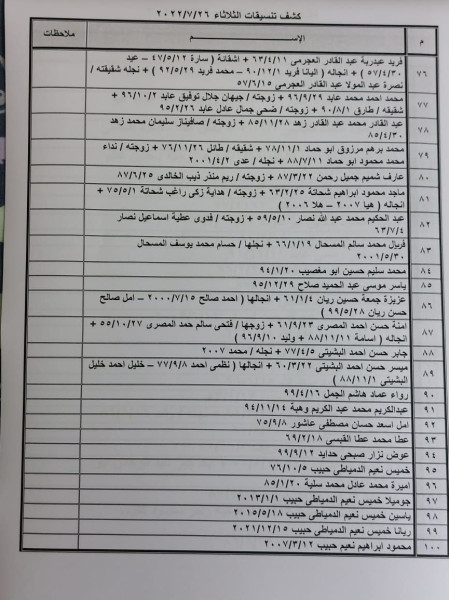 كشف تنسيقات الثلاثاء ٢٠٢٢/٧/٢٦
م الإســـم ملاحظات
فريد عبدربة عبد القادر العجرمي ٦٣/٤/١١ + اشقانة ( سارة ٤٧/٥/١٢ – عيد
٧٦ ٥٧/٤/٣٠ ) + انجاله ( اليانا فريد ٩٠/١٢/١ – محمد فريد ٩٢/٥/٢٩ ) + نجله شقيقته /
نصرة عبد المولا عبد القادر العجرمي ٥٧/٦/١٥
٧٧ محمد احمد محمد عابد ٩٦/٩/٢٩ + زوجته / جيهان جلال توفيق عابد ٩٦/١٠/٢ +
شقيقه / طارق ٩٠/٨/١ + زوجته / ضحى جمال عادل عابد ٩٥/٢/٢٦
٧٨ عبد القادر محمد عبد القادر زهد ٨٥/١١/٢٨ + زوجته / صافيناز سليمان محمد زهد
٨٥/٤/٣٠
٧٩ محمد برهم مرزوق ابو حماد ٧٨/١١/١ + شقيقه / طائل ٧٦/١١/٢٦ + زوجته / نداء
محمد محمود ابو حماد ٨٨/٧/١١ + نجله / عدى ٢٠٠١/٤/٢
٨٠ عارف شميم جميل رحمن ٨٧/٣/٢٢ + زوجته / ريم منذر ذيب الخالدى ٨٧/٦/٢٥
٨١ ماجد محمود ابراهيم شحاتة ٦٣/٢/٢٥ + زوجته / هداية زكى راغب شحاتة ٧٥/٥/١ +
انجاله ( هيا ٢٠٠٧ – هلا ٢٠٠٦ )
٨٢ عبد الحكيم محمد عبد الله نصار ٥٩/٥/١٠ + زوجته / فدوى عطية اسماعيل نصار
٦٣/٧/٤
٨٣ فريال محمد سالم المسحال ٦٦/١/١٩ + نجلها / حسام محمد يوسف المسحال
٢٠٠١/٥/٣٠
٨٤ محمد سليم حسين ابو مغصيب ٩٤/١/٢٠
٨٥ ياسر موسى عبد الحميد صلاح ٩٥/١٢/٢٩
٨٦ عزيزة جمعة حسين ريان ٦١/١/٤ + انجالها ( احمد صالح ٢٠٠٠/٧/١٥ – امل صالح
حسن ريان ٩٩/٥/٢٨ )
٨٧ امنة حسن احمد المصرى ٦١/٩/٢٣ + زوجها / فتحى سالم حمد المصرى ٥٥/١٠/٢٧ +
انجاله ( اسامة ٨٨/١١/١١ + وليد ٩٦/٩/١٠ )
٨٨ جابر حسن احمد البشيتى ٧٧/٤/٥ + نجله / محمد ٢٠٠٧
٨٩ ميسر حسن احمد البشيتى ٦٠/٣/٢٢ + انجالها ( نظمى احمد ٧٧/٩/٨ – خليل احمد خليل
البشيتى ٨٨/١١/١ )
٩٠ رواء عماد هاشم الجمل ٩٩/٤/١٦
٩١ عبدالكريم محمد عبد الكريم وهبة ٩٤/١١/١٤
٩٢ امل اسعد حسان مصطفى عاشور ٧٥/٩/٨
٩٣ عطا محمد عطا القبسى ٦٩/٢/١٨
٩٤ عوض نزار صبحى حدايد ٩٩/٩/١٢
٩٥ خميس نعيم الدمياطى حبيب ٧٦/١٠/٥
٩٦ اميرة محمد عادل محمد سلية ٨٥/١/٢٠
٩٧ جوميلا خميس نعيم الدمياطى حبيب ٢٠١٣/١/١
٩٨ ياسين خميس نعيم الدمياطى حبيب ٢٠١٥/٥/١٨
٩٩ ريانا خميس نعيم الدمياطى حبيب ٢٠٢١/١٢/١٥
١٠٠ محمود ابراهيم نعيم حبيب ٢٠٠٧/٣/١٢